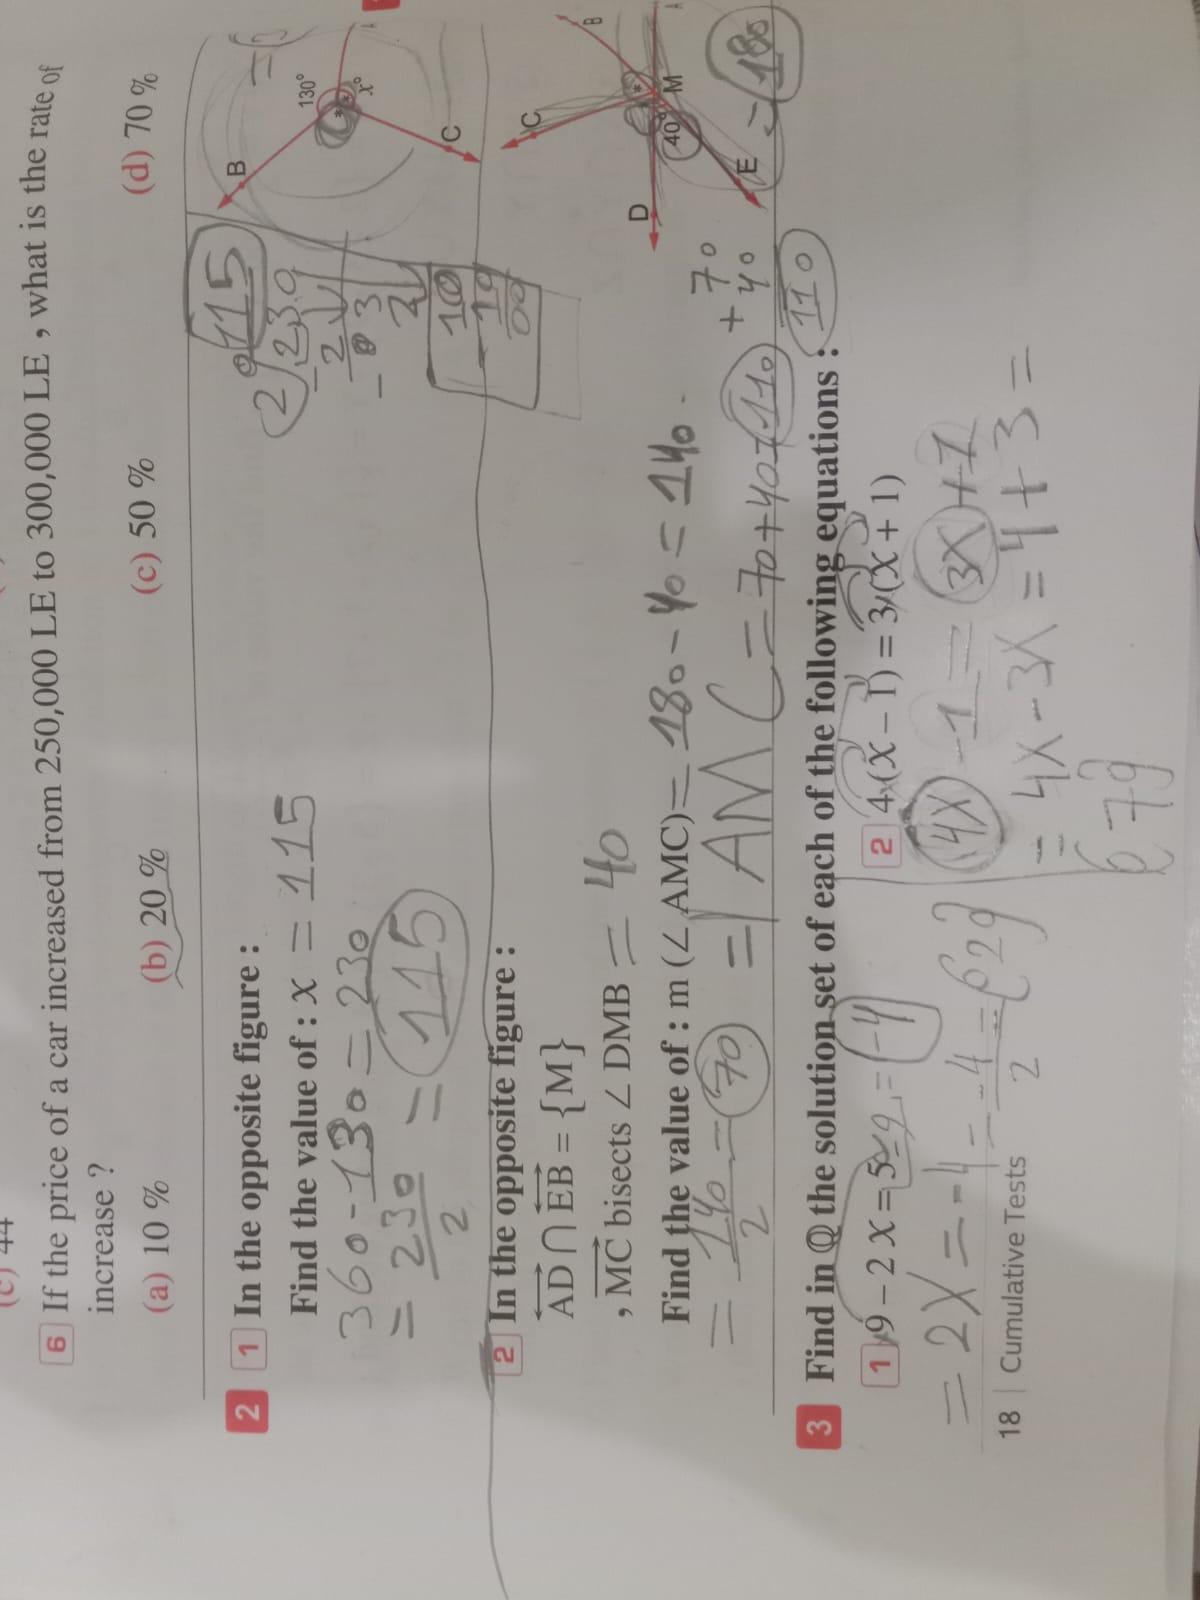 6 If the price of a car increased from 250,000 LE to 300,000 LE , what is the rate of
increase ?
(a) 10 %
(b) 20 %
(c) 50 %
(d) 70 %
2 1 In the opposite figure :
Find the value of : x = 115
360 - 130 = 230
= 230
2
= 115
2 230
115
2
3
2
10
10
00
B
130°
x°
C
2 In the opposite figure :
AD ∩ EB = {M}
, MC bisects ∠ DMB = 40
Find the value of : m (∠ AMC) = 180 - 40 = 140
= 140 = 70
2
= AMC = 70 + 40 = 110
+ 70
40
110
= 180
C
B
A
D
M
40°
E
3 Find in ℚ the solution set of each of the following equations :
1 9 – 2 x = 5 - 9 = -4
= 2X = -4 = -4 = {2}
2
2 4 (x – 1) = 3 (x + 1)
4X - 1 = 3X + 1
= 4X - 3X = 4 + 3 =
{7}
18 | Cumulative Tests